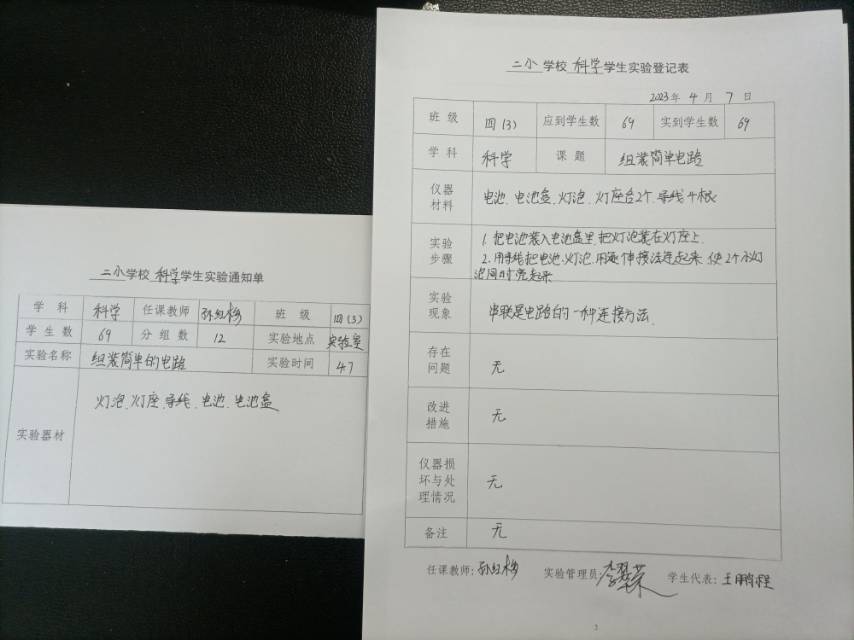 二小学校科学学生实验通知单
学科 科学 任课教师 孙红梅 班级 四(3)
学生数 69 分组数 12 实验地点 实验室
实验名称 组装简单的电路 实验时间 4.7
实验器材 灯泡、灯座、导线、电池、电池盒
二小学校科学学生实验登记表
2023年4月7日
班级 四(3) 应到学生数 69 实到学生数 69
学科 科学 课题 组装简单电路
仪器材料 电池、电池盒、灯泡、灯座各2个、导线4根
实验步骤 1.把电池装入电池盒里,把灯泡装在灯座上.
2.用导线把电池、灯泡、用 串接法连起来.使2个小灯
泡同时亮起来
实验现象 串联是电路的一种连接方法.
存在问题 无
改进措施 无
仪器损坏与处理情况 无
备注 无
任课教师:孙红梅 实验管理员: 学生代表:王鹏程
3